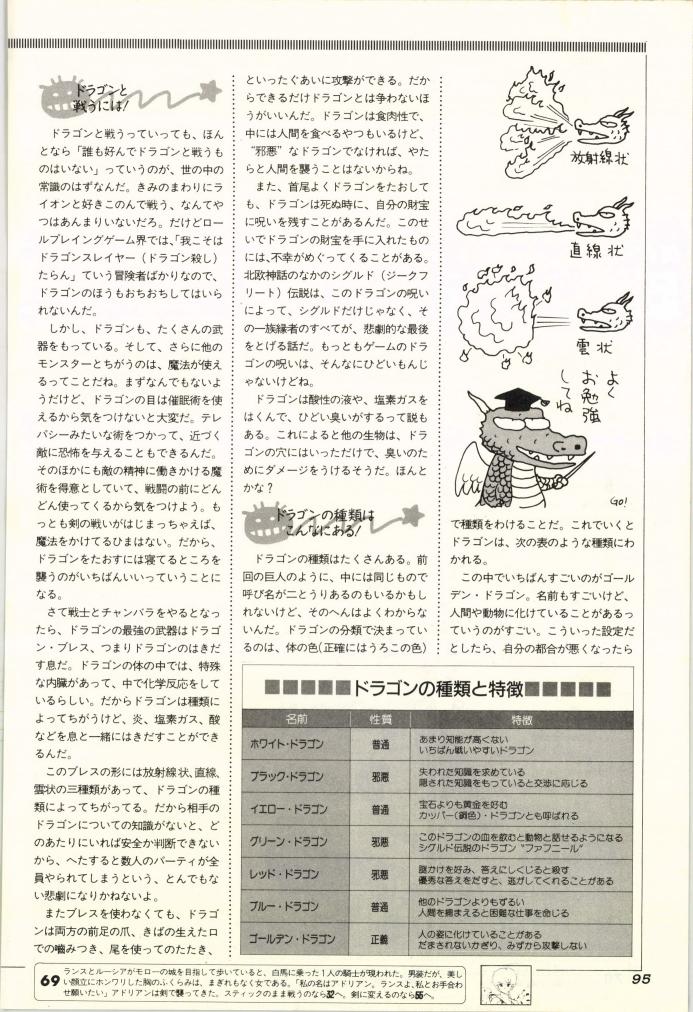 ドラゴンと
戦うには!
ドラゴンと戦うっていっても、ほん
となら「誰も好んでドラゴンと戦うも
のはいない」っていうのが、世の中の
常識のはずなんだ。きみのまわりにラ
イオンと好きこのんで戦う、なんてや
つはあんまりいないだろ。だけどロー
ルプレイングゲーム界では、「我こそは
ドラゴンスレイヤー(ドラゴン殺し)
たらん」ていう冒険者ばかりなので、
ドラゴンのほうもおちおちしてはいら
れないんだ。
しかし、ドラゴンも、たくさんの武
器をもっている。そして、さらに他の
モンスターとちがうのは、魔法が使え
るってことだね。まずなんでもないよ
うだけど、ドラゴンの目は催眠術を使
えるから気をつけないと大変だ。テレ
パシーみたいな術をつかって、近づく
敵に恐怖を与えることもできるんだ。
そのほかにも敵の精神に働きかける魔
術を得意としていて、戦闘の前にどん
どん使ってくるから気をつけよう。も
っとも剣の戦いがはじまっちゃえば、
魔法をかけてるひまはない。だから、
ドラゴンをたおすには寝てるところを
襲うのがいちばんいいっていうことに
なる。
さて戦士とチャンバラをやるとなっ
たら、ドラゴンの最強の武器はドラゴ
ン・ブレス、つまりドラゴンのはきだ
す息だ。ドラゴンの体の中では、特殊
な内臓があって、中で化学反応をして
いるらしい。だからドラゴンは種類に
よってちがうけど、炎、塩素ガス、酸
などを息と一緒にはきだすことができ
るんだ。
このブレスの形には放射線状、直線、
雲状の三種類があって、ドラゴンの種
類によってちがってる。だから相手の
ドラゴンについての知識がないと、ど
のあたりにいれば安全か判断できない
から、へたすると数人のパーティが全
員やられてしまうという、とんでもな
い悲劇になりかねないよ。
またブレスを使わなくても、ドラゴ
ンは両方の前足の爪、きばの生えた口
での嚙みつき、尾を使ってのたたき、
といったぐあいに攻撃ができる。だか
らできるだけドラゴンとは争わないほ
うがいいんだ。ドラゴンは食肉性で、
中には人間を食べるやつもいるけど、
"邪悪"なドラゴンでなければ、やた
らと人間を襲うことはないからね。
また、首尾よくドラゴンをたおして
も、ドラゴンは死ぬ時に、自分の財宝
に呪いを残すことがあるんだ。このせ
いでドラゴンの財宝を手に入れたもの
には、不幸がめぐってくることがある。
北欧神話のなかのシグルド(ジークフ
リート)伝説は、このドラゴンの呪い
によって、シグルドだけじゃなく、そ
の一族縁者のすべてが、悲劇的な最後
をとげる話だ。もっともゲームのドラ
ゴンの呪いは、そんなにひどいもんじ
ゃないけどね。
ドラゴンは酸性の液や、塩素ガスを
はくんで、ひどい臭いがするって説も
ある。これによると他の生物は、ドラ
ゴンの穴にはいっただけで、臭いのた
めにダメージをうけるそうだ。ほんと
かな?
ドラゴンの種類は
こんなにある!
ドラゴンの種類はたくさんある。前
回の巨人のように、中には同じもので
呼び名が二とうりあるのもいるかもし
れないけど、そのへんはよくわからな
いんだ。ドラゴンの分類で決まってい
るのは、体の色(正確にはうろこの色)
放射線状
直線状
雲状
よく
お勉強
してね
GO!
で種類をわけることだ。これでいくと
ドラゴンは、次の表のような種類にわ
かれる。
この中でいちばんすごいのがゴール
デン・ドラゴン。名前もすごいけど、
人間や動物に化けていることがあるっ
ていうのがすごい。こういった設定だ
としたら、自分の都合が悪くなったら
ドラゴンの種類と特徴
名前 性質 特徴
ホワイト・ドラゴン 普通 あまり知能が高くない
いちばん戦いやすいドラゴン
ブラック・ドラゴン 邪悪 失われた知識を求めている
隠された知識をもっていると交渉に応じる
イエロー・ドラゴン 普通 宝石よりも黄金を好む
カッパー(銅色)・ドラゴンとも呼ばれる
グリーン・ドラゴン 邪悪 このドラゴンの血を飲むと動物と話せるようになる
シグルド伝説のドラゴン"ファフニール"
レッド・ドラゴン 邪悪 謎かけを好み、答えにしくじると殺す
優秀な答えをだすと、逃がしてくれることがある
ブルー・ドラゴン 普通 他のドラゴンよりもずるい
人間を捕まえると困難な仕事を命じる
ゴールデン・ドラゴン 正義 人の姿に化けていることがある
だまされないかぎり、みずから攻撃しない
69 ランスとルーシアがモローの城を目指して歩いていると、白馬に乗った1人の騎士が現われた。男装だが、美し
い顔立にホンワリした胸のふくらみは、まぎれもなく女である。「私の名はアドリアン。ランスよ、私とお手合わ
せ願いたい」アドリアンは剣で襲ってきた。スティックのまま戦うのなら32へ。剣に変えるのなら55へ。
95